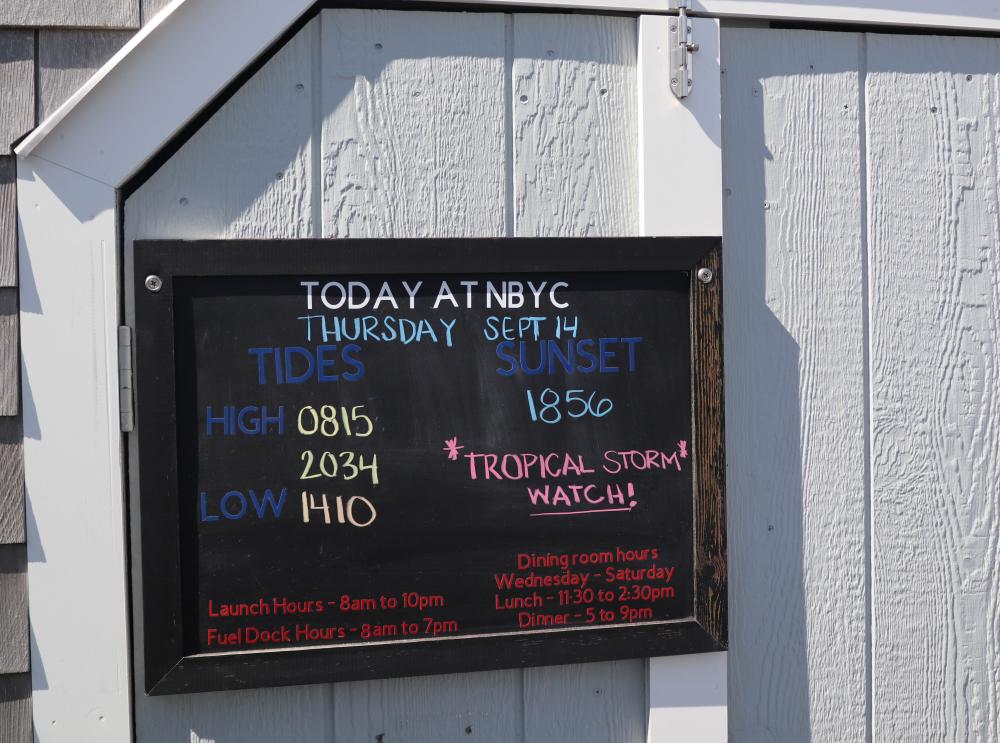 TODAY AT NBYC
THURSDAY SEPT 14
TIDES
HIGH 0815
2034
LOW 1410
SUNSET
1856
*TROPICAL STORM*
WATCH!
Launch Hours - 8am to 10pm
Fuel Dock Hours - 8am to 7pm
Dining room hours
Wednesday - Saturday
Lunch - 11:30 to 2:30pm
Dinner - 5 to 9pm